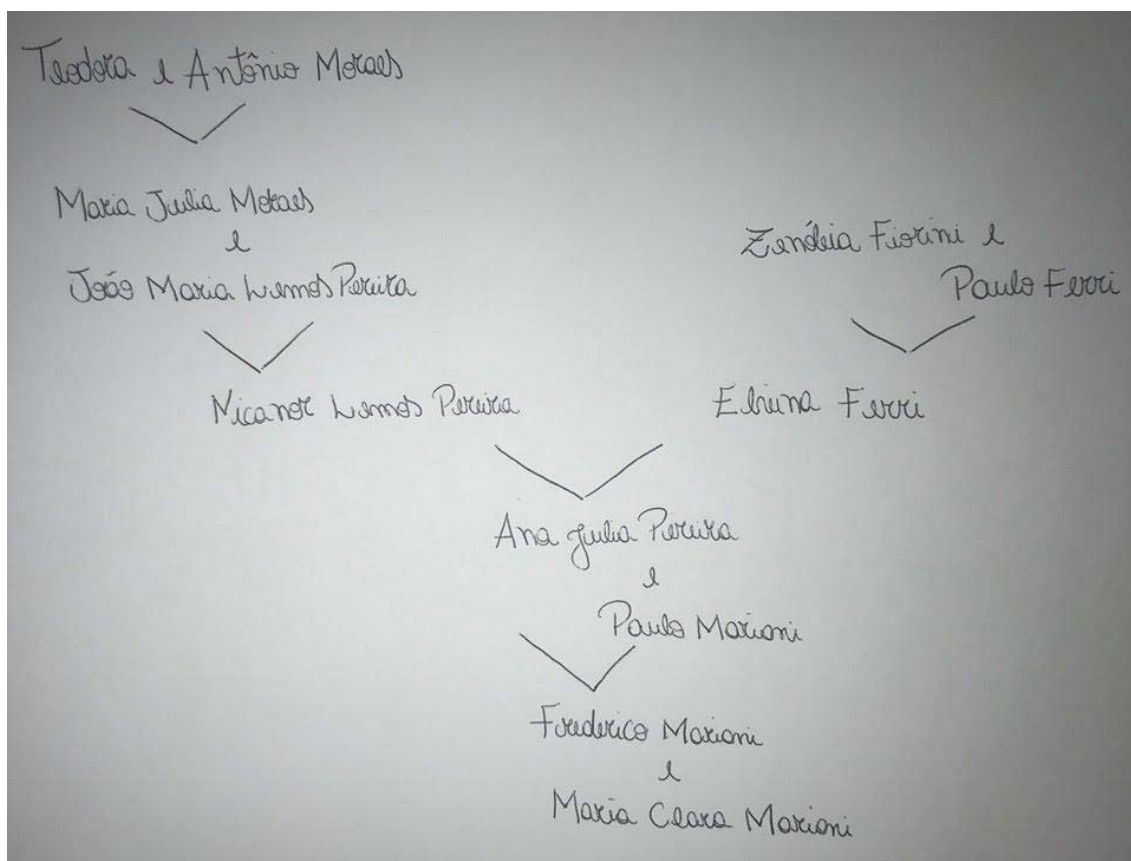 Teodora e Antônio Moraes
Maria Julia Moraes
e
João Maria Lemos Pereira
Zenóbia Fiorini e
Paulo Ferri
Nicanor Lemos Pereira
Elvina Ferri
Ana Julia Pereira
e
Paulo Marioni
Frederico Marioni
e
Maria Clara Marioni